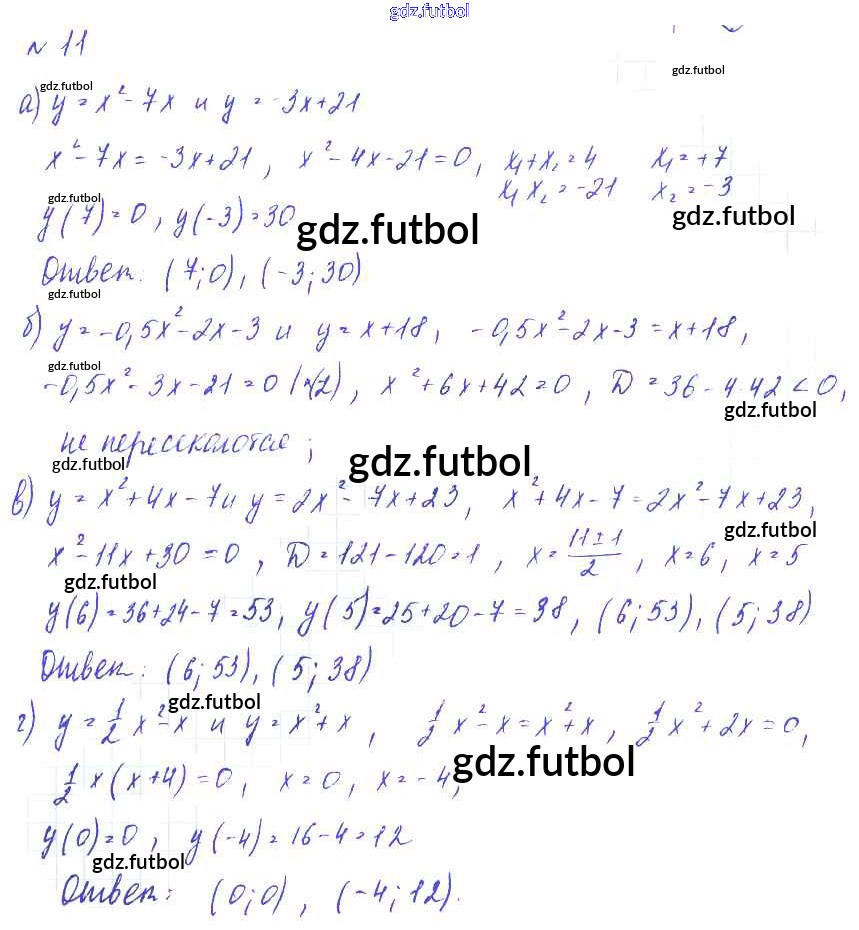 gdz.futbol
№ 11
gdz.futbol
gdz.futbol
а) y = x² - 7x и y = -3x + 21
x² - 7x = -3x + 21, x² - 4x - 21 = 0, x₁ + x₂ = 4 x₁ = +7
x₁ x₂ = -21 x₂ = -3
gdz.futbol
y(7) = 0, y(-3) = 30
gdz.futbol
gdz.futbol
Ответ: (7; 0), (-3; 30)
gdz.futbol
б) y = -0,5x² - 2x - 3 и y = x + 18, -0,5x² - 2x - 3 = x + 18,
gdz.futbol
-0,5x² - 3x - 21 = 0 |·(2), x² + 6x + 42 = 0, D = 36 - 4·42 < 0,
gdz.futbol
не пересекаются;
gdz.futbol
gdz.futbol
в) y = x² + 4x - 7 и y = 2x² - 7x + 23, x² + 4x - 7 = 2x² - 7x + 23,
gdz.futbol
x² - 11x + 30 = 0, D = 121 - 120 = 1, x = (11 ± 1)/2, x = 6, x = 5
gdz.futbol
y(6) = 36 + 24 - 7 = 53, y(5) = 25 + 20 - 7 = 38, (6; 53), (5; 38)
Ответ: (6; 53), (5; 38)
gdz.futbol
г) y = 1/2 x² - x и y = x² + x, 1/2 x² - x = x² + x, 1/2 x² + 2x = 0,
gdz.futbol
1/2 x(x + 4) = 0, x = 0, x = -4,
y(0) = 0, y(-4) = 16 - 4 = 12
gdz.futbol
Ответ: (0; 0), (-4; 12).